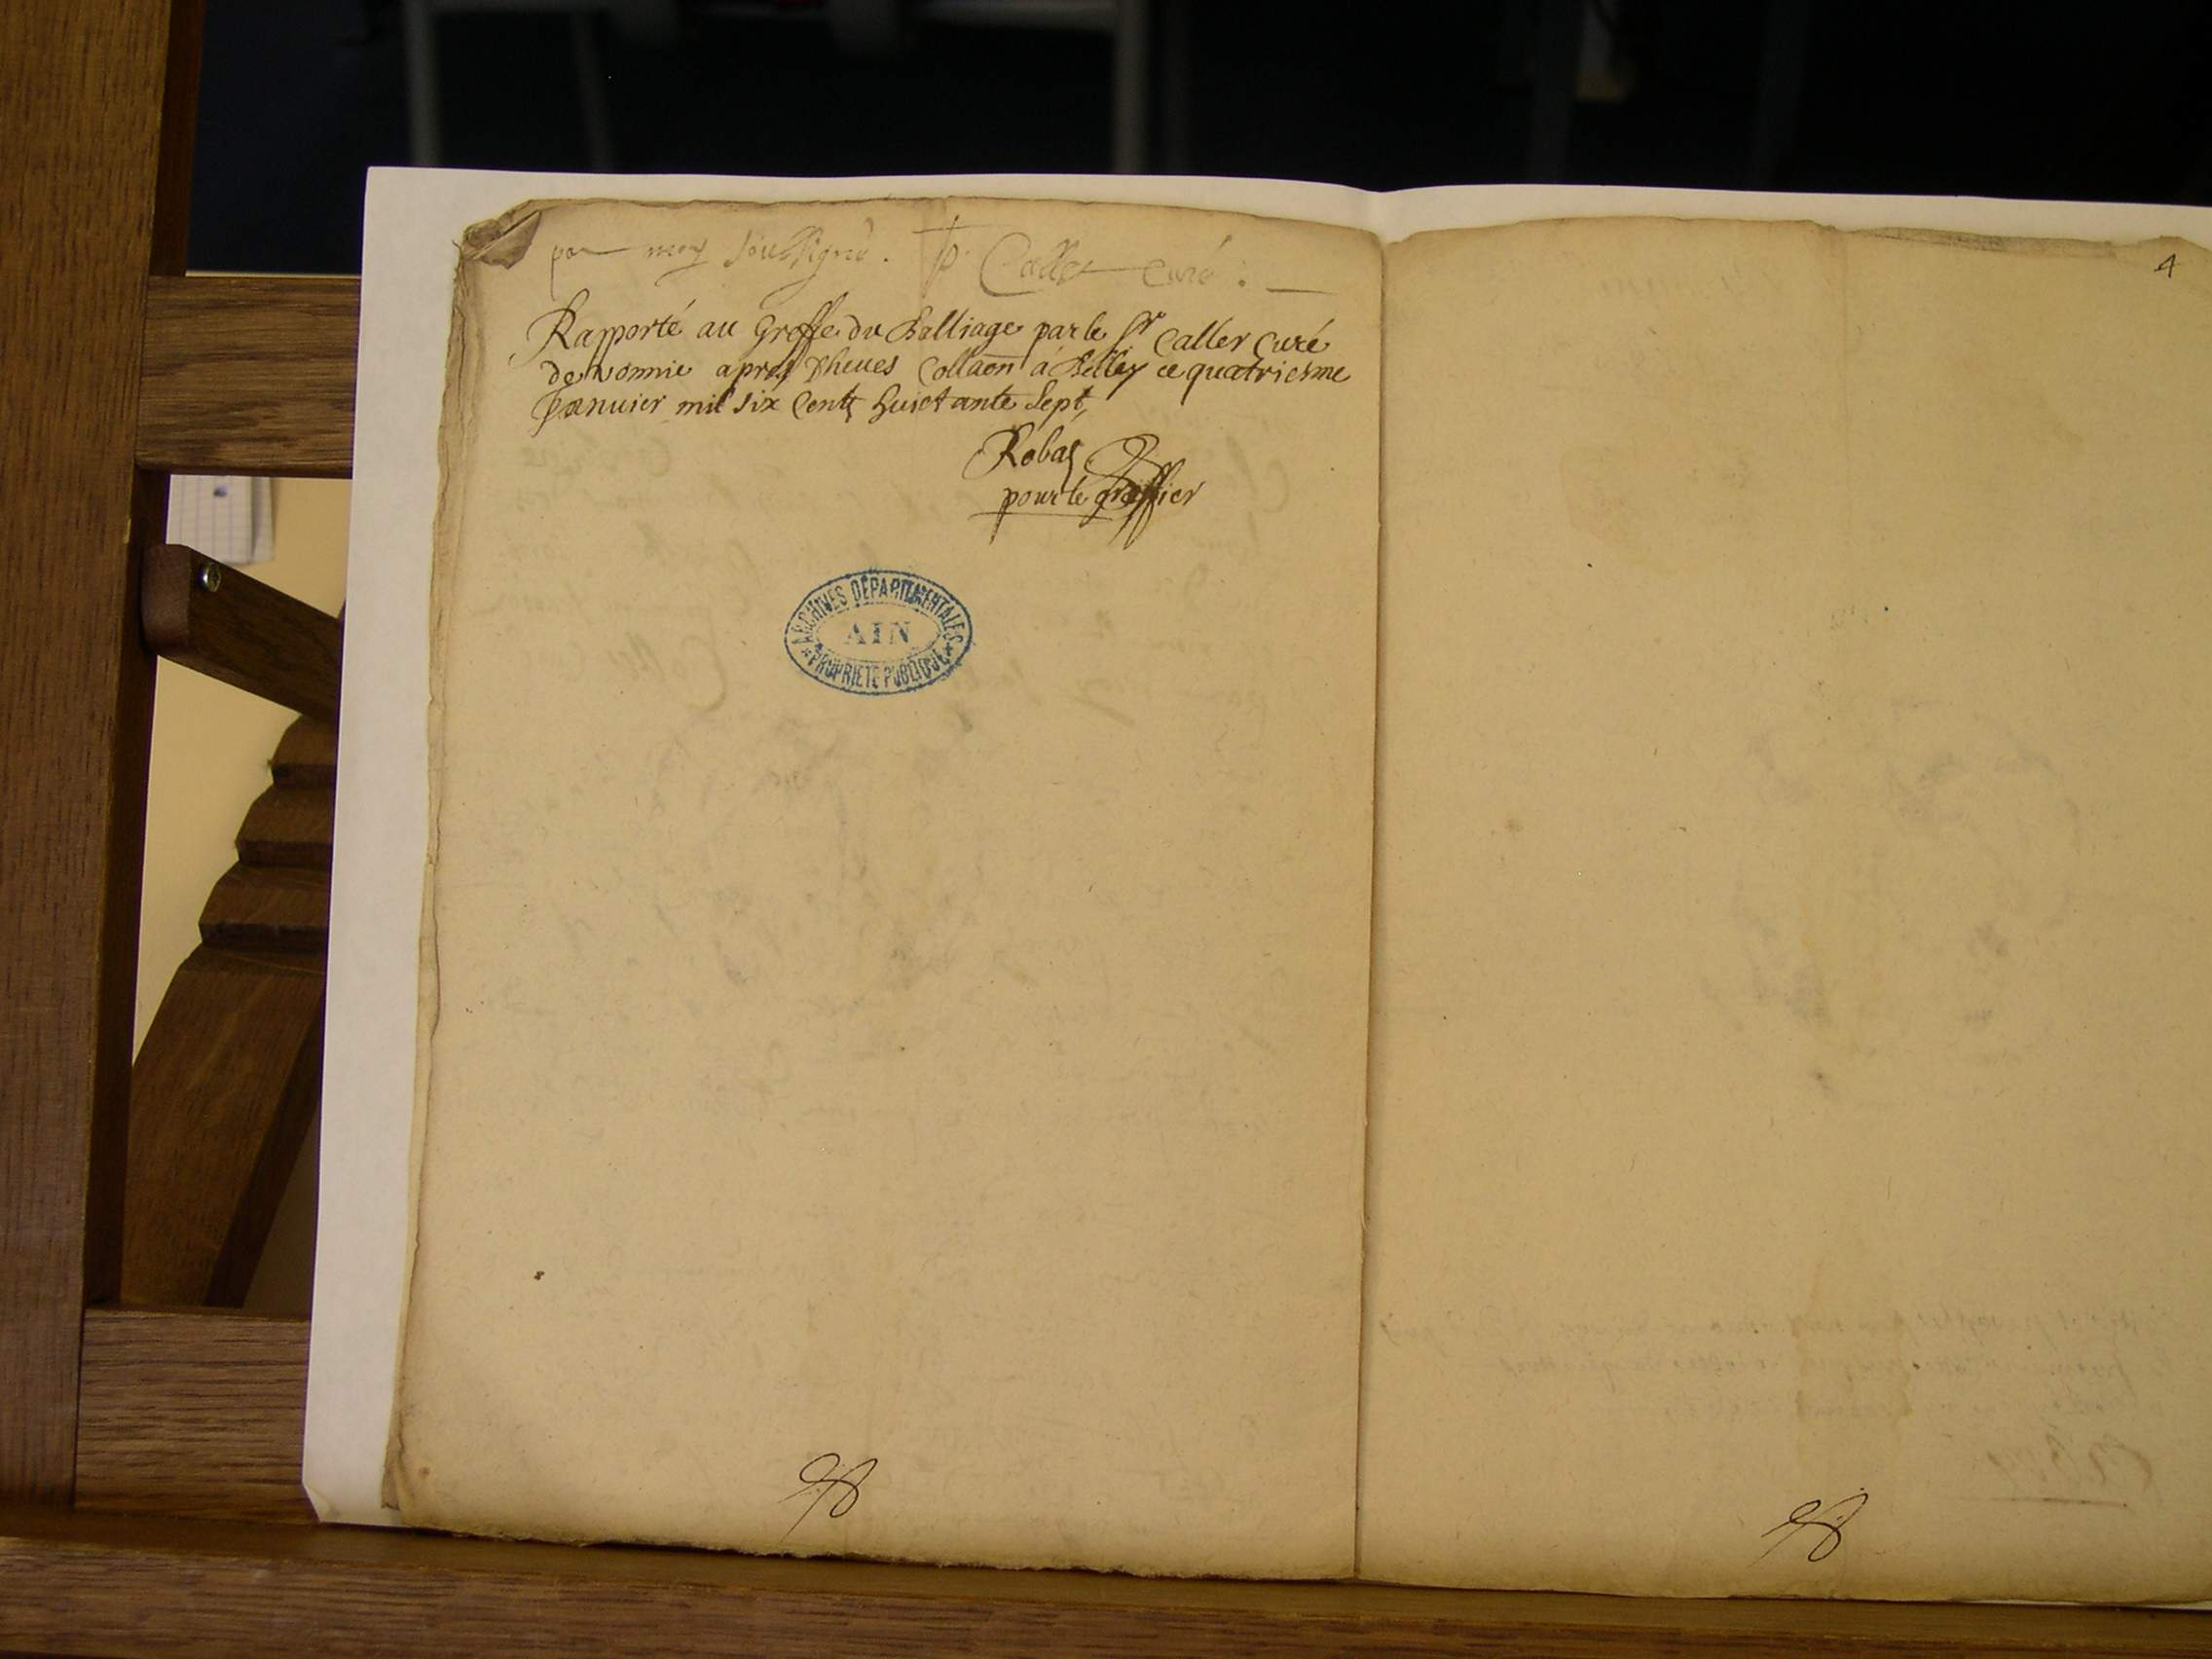 par moy soussigné. P. Caller curé :
Rapporté au Greffe du Balliage par le Sr Caller curé
de vonnie apres dheues Collaon à Belley ce quatriesme
Janvier mil six Cents huictante sept,
Robas
pour le greffier
ARCHIVES DÉPARTEMENTALES
AIN
PROPRIÉTÉ PUBLIQUE
4